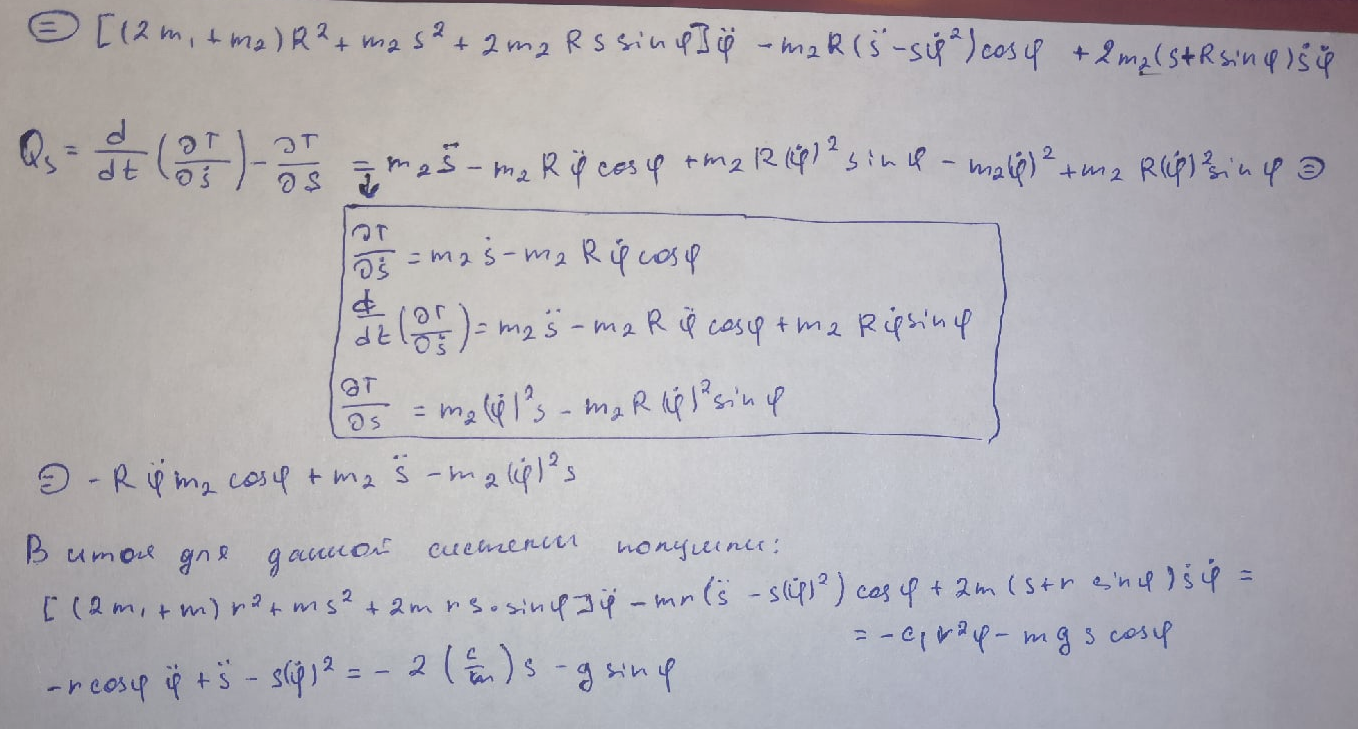 ⊜ [(2m₁+m₂)R²+m₂s²+2m₂Rs sinφ]φ̈ -m₂R(s̈-sφ̇²)cosφ +2m₂(s+Rsinφ)ṡφ̇
Qₛ = d/dt(∂T/∂ṡ) - ∂T/∂s = m₂s̈ - m₂Rφ̈cosφ + m₂R(φ̇)²sinφ - m₂(φ̇)² + m₂R(φ̇)²sinφ ⊜
∂T/∂ṡ = m₂ṡ - m₂Rφ̇cosφ
d/dt(∂T/∂ṡ) = m₂s̈ - m₂Rφ̈cosφ + m₂Rφ̇sinφ
∂T/∂s = m₂(φ̇)²s - m₂R(φ̇)²sinφ
⊜ -Rφ̈m₂cosφ + m₂s̈ - m₂(φ̇)²s
В итоге для данной системы получим:
[(2m₁+m)r²+ms²+2mrs·sinφ]φ̈ - mr(s̈-s(φ̇)²)cosφ + 2m(s+r sinφ)ṡφ̇ =
= -c₁r²φ - mgs cosφ
-rcosφ φ̈ + s̈ - s(φ̇)² = -2(c/m)s - g sinφ